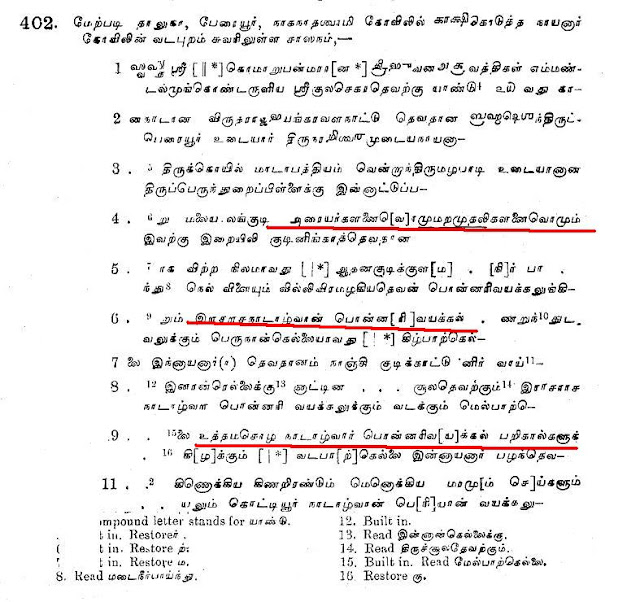 402. மேற்படி தாலுகா, பேரையூர், நாகநாதஸ்வாமி கோவிலில் காக்ஷிகொடுத்த நாயனார்
கோவிலின் வடபுறம் சுவரிலுள்ள சாஸநம்,—
1 ஸ்வஸ்திஸ்ரீ [||*] கொமாறுபன்மரா[ன*] எம்மண்-
டலமுங்கொண்டருளிய ஸ்ரீகுலசெகரதெவற்கு யாண்டு வது கா-
2 னநாடான தெவதான
பெரையூர் உடையார்
3 . 5 திருக்கொயில் மாடாபத்தியம் வென்றுந்திருமழபாடி உடையானான
திருப்பெருந்துறைப்பிள்ளைக்கு இன்னாட்டுப்ப—
4 . 6 று மலைய.லங்குடி அரையர்களனை[வ]ரமுமறமுதலிகளனைவொமும்
இவற்கு இறையிலி குடினிங்காத்தெவதான
5 . 7 ரக விற்ற நிலமாவது [|*] ஆதனகுடிக்குள[ம] . [கி]ர் பா .
ந்து8 நெல் வினையும் வில்லிவிரமழகியதெவன் பொன்னரிவயக்கலுங்கி—
6 . 9 றம் இராசராசநாடாழ்வான் பொன்ன[ரி]வயக்கல் . ணறுந்10துட.
வலுக்கும் பெருநான்கெல்லையாவது [|*] கிழ்பாற்கெல—
7 லை இந்னாயனார்(ர) தெவதானம் நாஞ்சி குடிக்காட்டு னிர் வாய்11—
8 . 12 இனான்ரெல்லைக்கு13 ளாட்டின . . . சூலதெவற்கும்14 இராசராச
நாடாழ்வா பொன்னரி வயக்கலுக்கும் வடக்கும் மெல்பாற்கெ—
9 . 15லை உத்தமசொழ நாடாழ்வார் பொன்னரிவ[ய]க்கல் பறிகால்களுக்
. 16 கி[ழ]க்கும் [|*] வடபா[ற்]கெல்லை இன்னாயனார் பழந்தெவ—
11 . .2 கிணெக்கிய கிணறிரண்டும் மெனொக்கிய மாமு[ம்] செ]ய்களும்
. . யலும் கொட்டியூர் நாடாழ்வான் பெ[ரி]யான் வயக்கலு—
mpound letter stands for யாண்டு.
t in. Restore
t in. Restore ற்.
t in. Restore ம.
8. Read மடைநீர்பாய்ந்து.
12. Built in.
13. Read இன்னான்கெல்லைக்கு.
14. Read திருச்சூலதேவற்கும்.
15. Built in. Read மேல்பாற்கெல்லை.
16 Restore கு.